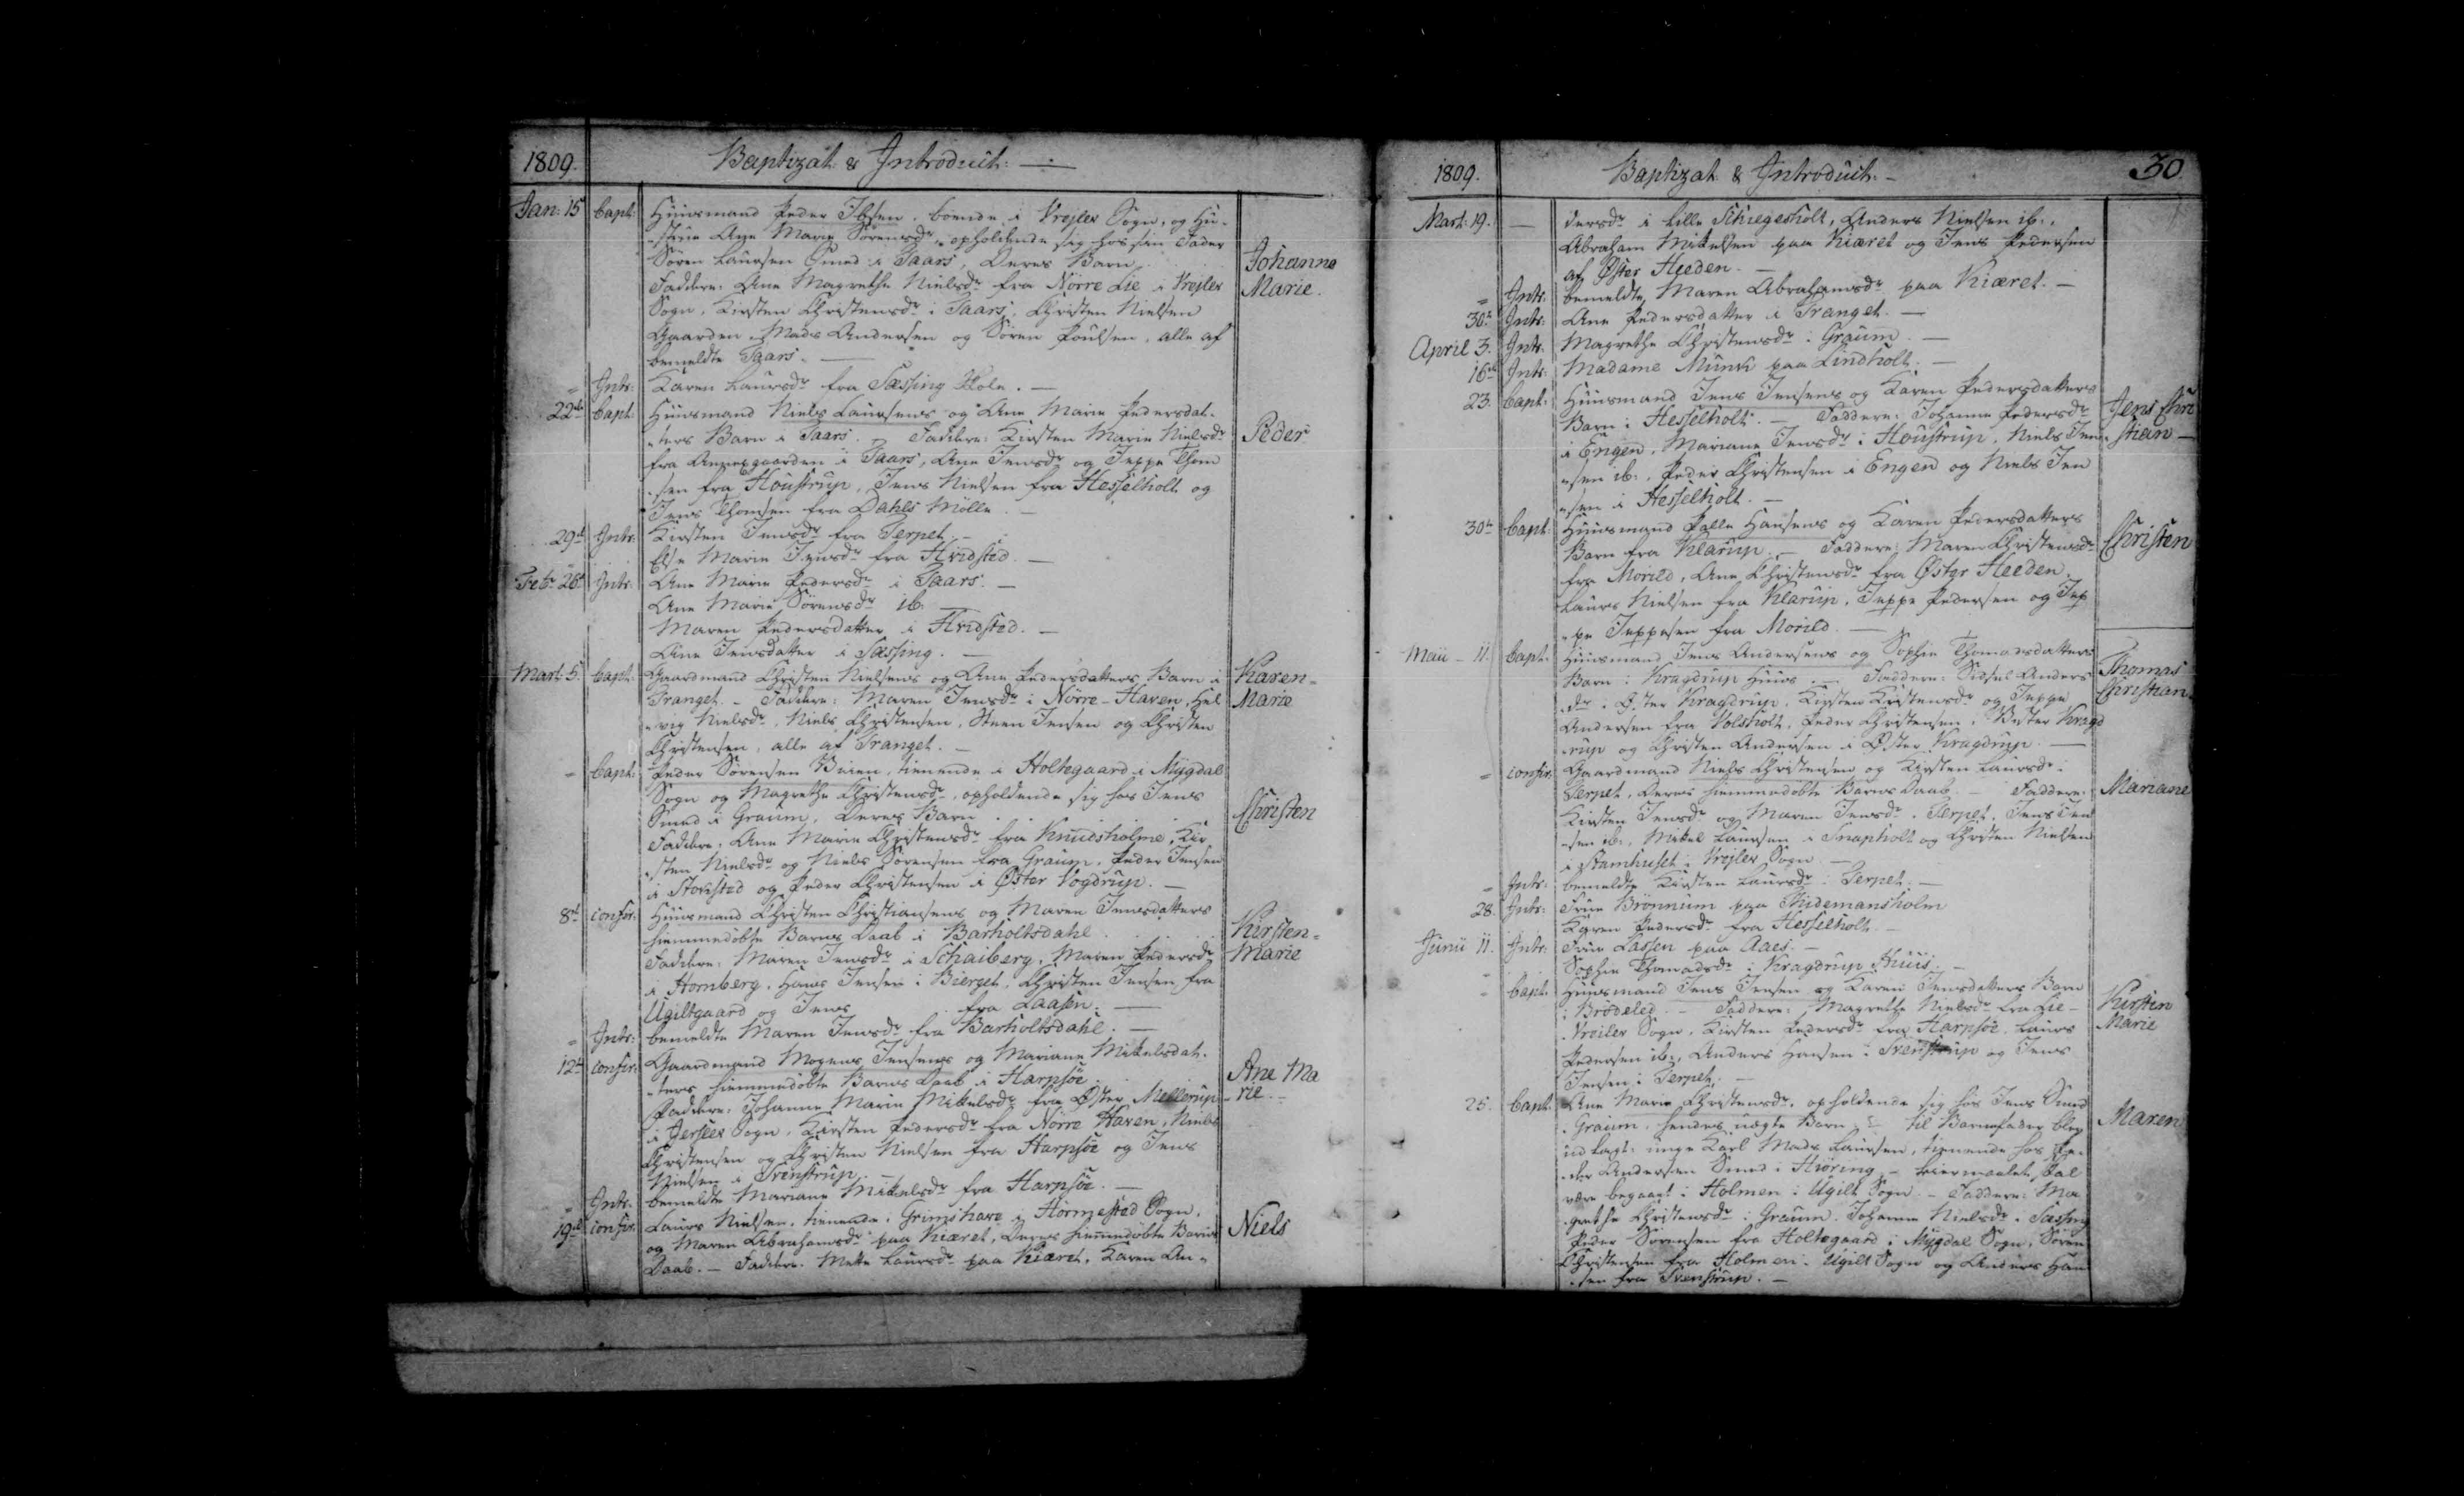 1809. Baptizat & Introduct: —
Jan: 15 bapt: Huusmand Peder Ibsen, boende i Vrejlev Sogn, og Hu-
-strue Ane Marie Sørensdr, opholdende sig hos sin Fader
Søren Laursen Smed i Taars, Deres Barn Johanne
Faddere: Ane Magrethe Nielsdr fra Nörre Lie i Vrejlev Marie.
Sogn, Kirsten Christensdr i Taars, Christen Nielsen
Gaarden, Mads Andersen og Søren Poulsen, alle af
bemeldte Taars. —
" Intr: Karen Laursdr fra Sæssing Hole. —
22de bapt: Huusmand Niels Laursens og Ane Marie Pedersdat-
"ters Barn i Taars. — Faddere: Kirsten Marie Nielsdr Peder
fra Annexgaarden i Taars, Ane Jensdr og Jeppe Thom
"sen fra Houstrup, Jens Nielsen fra Hesselholt og
Jens Thomsen fra Dahls Mölle. —
29d Intr: Kirsten Jensdr fra Terpet. —
Else Marie Jensdr fra Hvidsted. —
Febr 26d Intr: Ane Marie Pedersdr i Taars. —
Ane Marie Sørensdr ib: —
Maren Pedersdatter i Hvidsted. —
Ane Jensdatter i Sæssing. —
Mart: 5 bapt: Gaardmand Christen Nielsens og Ane Pedersdatters Barn i Karen-
Tranget. – Faddere: Maren Jensdr i Nörre-Haven, Hel Marie
"vig Nielsdr, Niels Christensen, Steen Jensen og Christen
Christensen, alle af Tranget. —
" bapt: Peder Sørensen Buien, tienende i Holtegaard i Mygdal
Sogn og Magrethe Christensdr, opholdende sig hos Jens
Smed i Graum, Deres Barn Christen
Faddere: Ane Marie Christensdr fra Knudsholme, Kir
"sten Nielsdr og Niels Sørensen fra Graum, Peder Jensen
i Stovsted og Peder Christensen i Øster Vogdrup. —
8d confir: Huusmand Christen Christiansens og Maren Jensdatters
hiemmedøbte Barns Daab i Barholtsdahl Kirsten-
Faddere: Maren Jensdr i Schaiberg, Maren Pedersdr Marie
i Hornberg, Hans Jensen i Bierget, Christen Jensen fra
Ugiltgaard og Jens fra Laasen. —
" Intr: bemeldte Maren Jensdr fra Barholtsdahl. —
12te confir: Gaardmand Mogens Jensens og Mariane Mikelsdat-
"ters hiemmedøbte Barns Daab i Harpsöe. Ane Ma
Faddere: Johanne Marie Mikelsdr fra Øster Mellerup -rie. –
i Jerslev Sogn, Kirsten Pedersdr fra Nörre Haven, Niels
Christensen og Christen Nielsen fra Harpsöe og Jens
Nielsen i Svenstrup. —
" Intr: bemeldte Mariane Mikelsdr fra Harpsöe. —
19de confir: Laurs Nielsen, tienende i Grimshave i Hörmested Sogn,
og Maren Abrahamsdr paa Kiæret, Deres hiemmedøbte Barns Niels
Daab. — Faddere: Mette Laursdr paa Kiæret, Karen An-
1809. Baptizat & Introduct: – 30
Mart: 19. — dersdr i Lille Schiegesholt, Anders Nielsen ib:,
Abraham Mikelsen paa Kiæret og Jens Pedersen
af Øster Heeden. —
" Intr: bemeldte Maren Abrahamsdr paa Kiæret. —
30te Intr: Ane Pedersdatter i Tranget. —
April 3. Intr: Magrethe Christensdr i Graum —
16de Intr: Madame Munk paa Lindholt. —
23. bapt: Huusmand Jens Jensens og Karen Pedersdatters
Barn i Hesselholt. — Faddere: Johanne Pedersdr Jens Chri
i Engen, Mariane Jensdr i Houstrup, Niels Jen- stian —
"sen ib:, Peder Christensen i Engen og Niels Jen
"sen i Hesselholt. —
30te bapt: Huusmand Palle Hansens og Karen Pedersdatters
Barn fra Klarup. — Faddere: Maren Christensdr Christen
fra Morild, Ane Christensdr fra Øster Heeden,
Laurs Nielsen fra Klarup, Jeppe Pedersen og Jep
"pe Jeppesen fra Morild. —
Maii – 11. bapt: Huusmand Jens Andersens og Sophie Thomasdatters
Barn i Kragdrup Huus. — Faddere: Sidsel Anders Thomas
"dr i Øster Kragdrup, Kirsten Kistensdr og Jeppe Christian.
Andersen fra Volsholt, Peder Christensen i Vester Kragd
"rup og Christen Andersen i Øster Kragdrup. —
" confir: Gaardmand Niels Christensen og Kirsten Laursdr i
Terpet, Deres hiemmedøbte Barns Daab. – Faddere: Mariane
Kirsten Jensdr og Maren Jensdr i Terpet, Jens Jen
"sen ib:, Mikel Laursen i Snapholt og Christen Nielsen
i Stamhuset i Vrejlev Sogn. —
" Intr: bemeldte Kirsten Laursdr i Terpet. —
28. Intr: Frue Brönnum paa Thidemansholm
Karen Pedersdr fra Hesselholt. —
Junii 11. Intr: Frue Lassen paa Aaes. —
Sophie Thomasdr i Kragdrup Huus. —
" bapt: Huusmand Jens Jensen og Karen Jensdatters Barn
i Brödeled. — Faddere: Magrethe Nielsdr fra Lie – Kirsten
i Vreilev Sogn, Kirsten Pedersdr fra Harpsöe, Laurs Marie
Pedersen ib:, Anders Hansen i Svenstrup og Jens
Jensen i Terpet. —
25. bapt: Ane Marie Christensdr, opholdende sig hos Jens Smed
i Graum, hendes uægte Barn. til Barnefader blev Maren
udlagt: unge Karl Mads Laursen, tienende hos Pe-
"der Andersen Smed i Hiöring. – Leiermaalet skal
være begaaet i Holmen i Ugilt Sogn. – Faddere: Ma-
"grethe Christensdr i Graum, Johanne Nielsdr i Sæssing
Peder Sørensen fra Holtegaard i Mygdal Sogn, Søren
Christensen fra Holmen i Ugilt Sogn og Anders Han
"sen fra Svenstrup. —